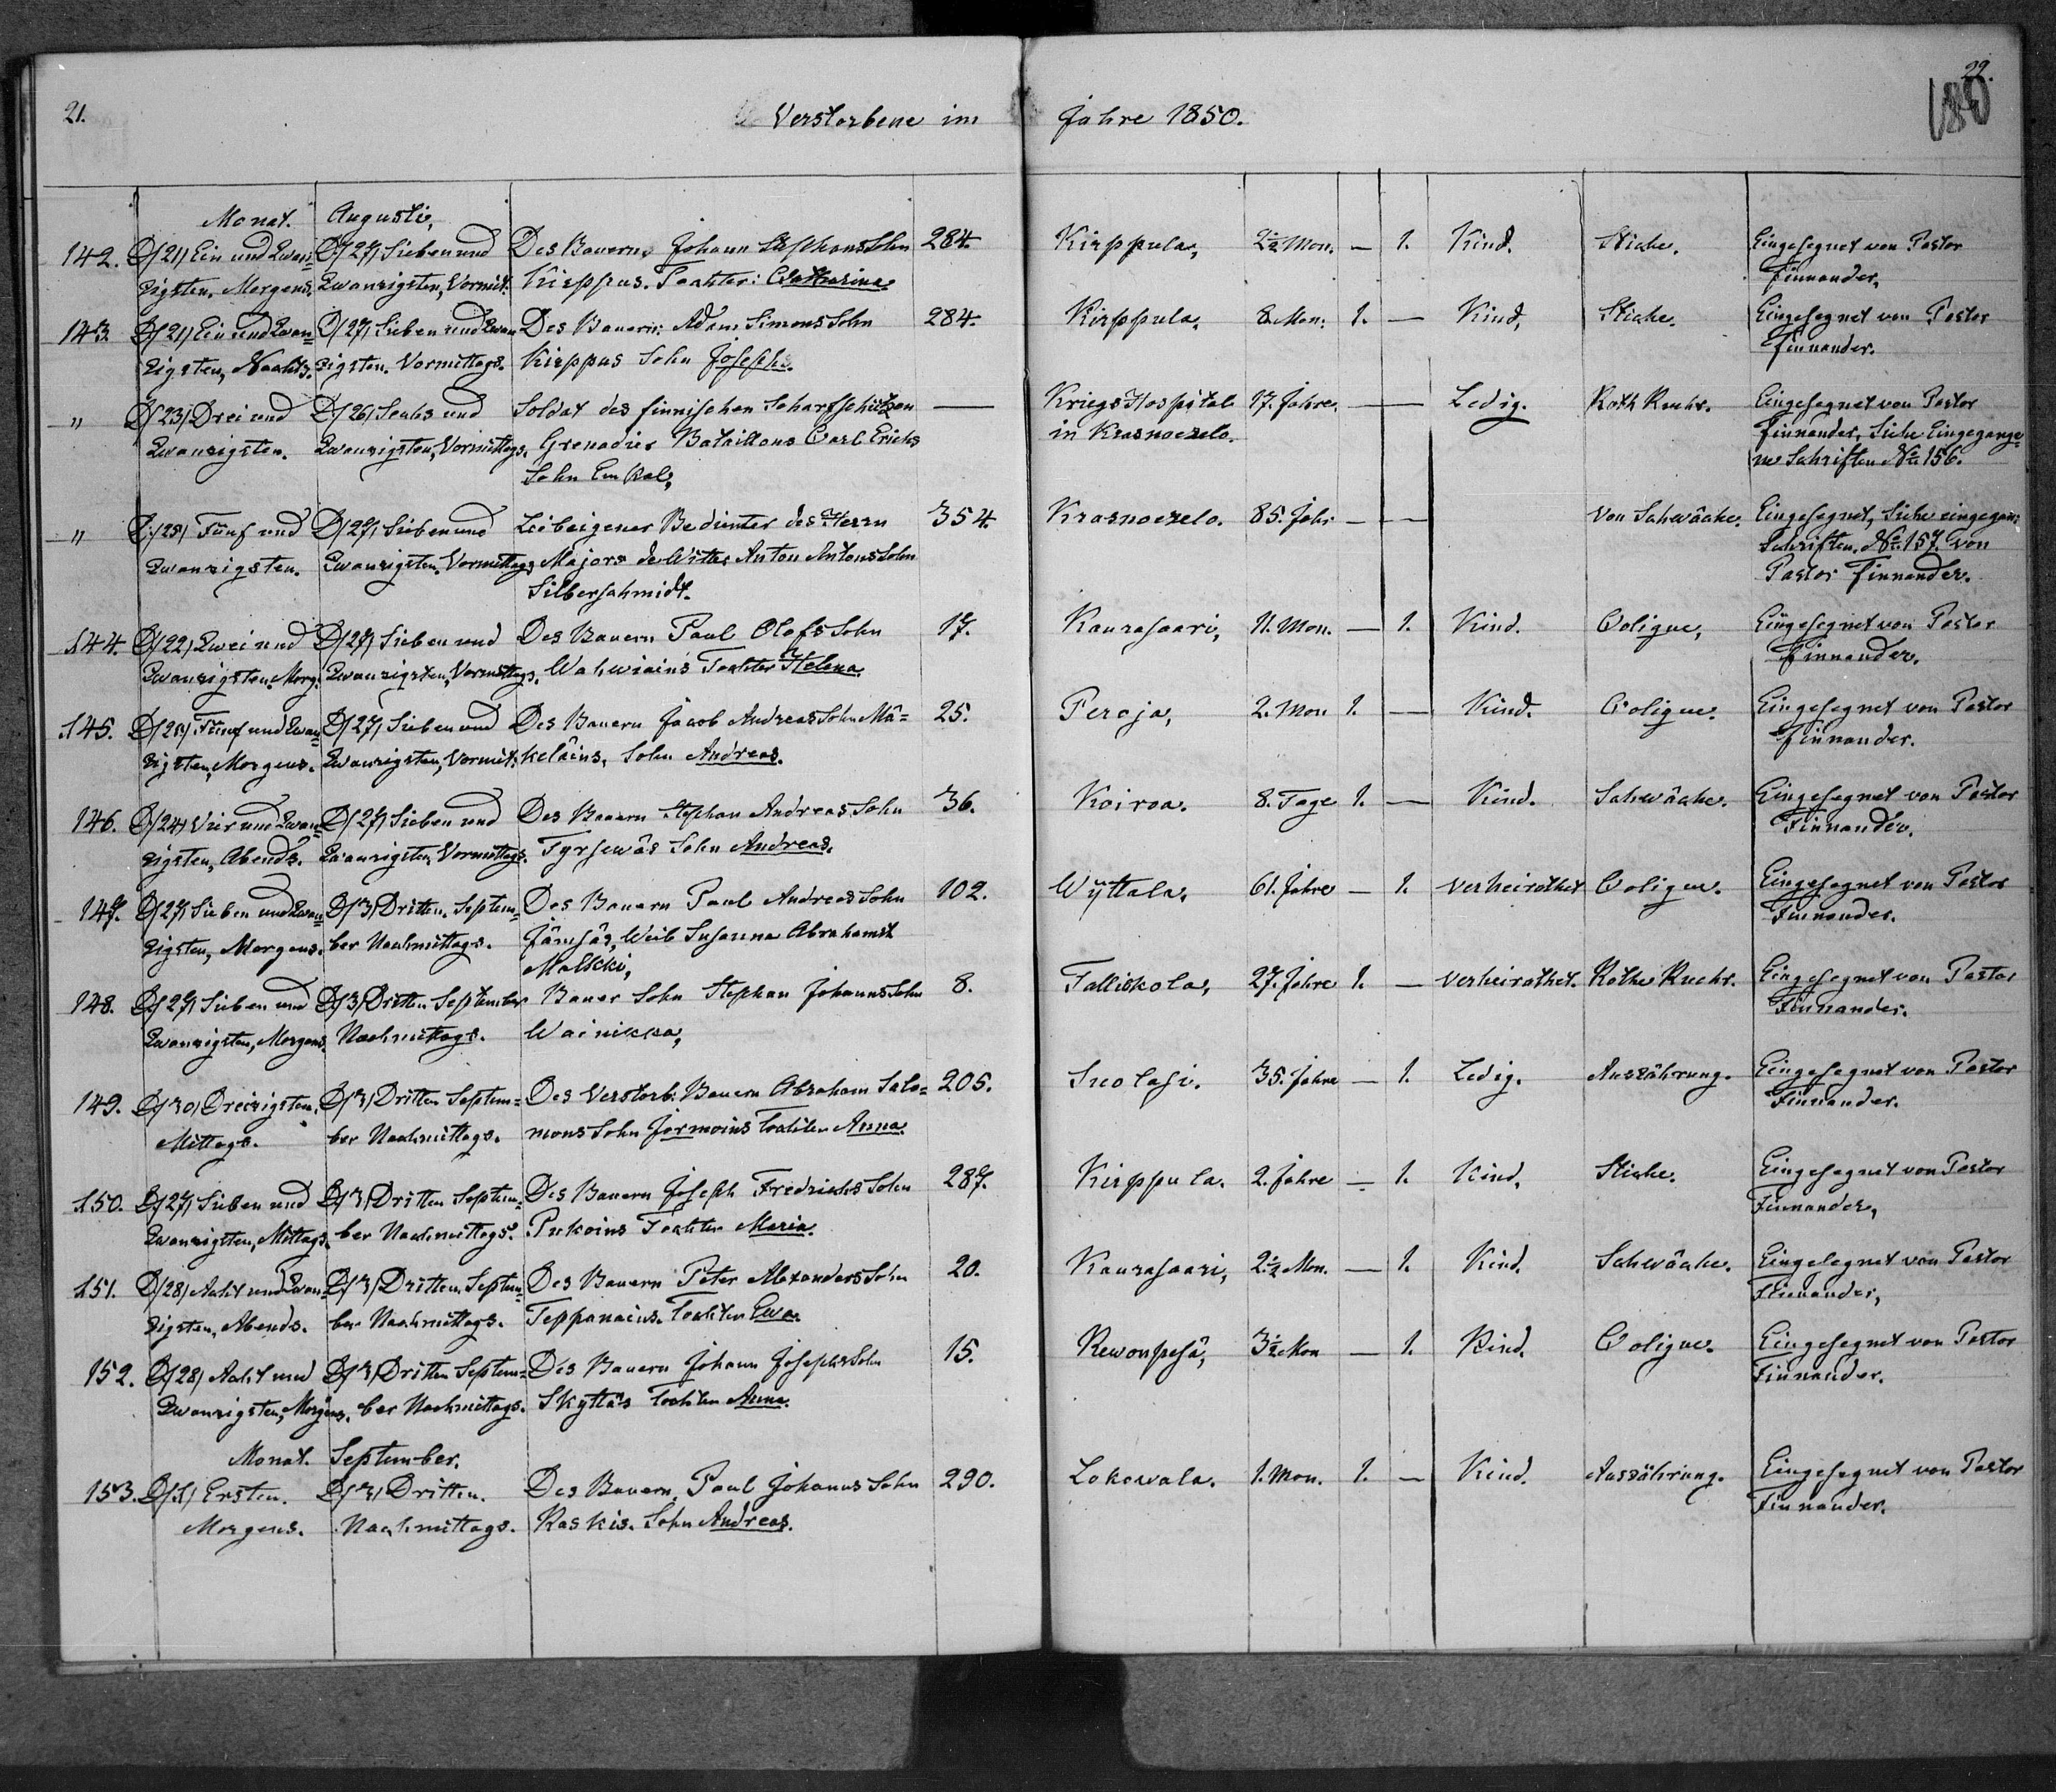 21.
22.
180
Verstorbene im Jahre 1850.
Monat. Augusti,
142. D/21/ Ein und Zwan= D/27/ Sieben und Des Bauern Johann Stephans Sohn 284. Kirppula, 2½ Mon. — 1. Kind. Stiche. Eingesegnet von Pastor
zigsten, Morgens. Zwanzigsten, Vormit. Kirppus. Tochter: Catharina. Finnander,
143. D/21/ Ein und Zwan= D/27/ Sieben und Zwan Des Bauern: Adam Simons Sohn 284. Kirppula, 8. Mon: 1. — Kind, Stiche. Eingesegnet von Pastor
zigsten, Nachts. zigsten. Vormittags. Kirppus Sohn Joseph. Finnander.
" D/23/ Drei und D/26/ Sechs und Soldat des finnischen Scharfschützen — Kriegs Hospital 17. Jahre. — — Ledig. Roth Ruhr. Eingesegnet von Pastor
Zwanzigsten. Zwanzigsten, Vormittags. Grenadier Bataillons Carl Erichs in Krasnoezelo. Finnander, Siehe Eingegange
Sohn ne Schriften No 156.
" D/25/ Fünf und D/27/ Sieben und Leibeigener Bedienter des Herrn 354. Krasnoezelo. 85. Jahr — — Von Schwäche. Eingesegnet, Siehe eingegan:
Zwanzigsten. Zwanzigsten. Vormittags Majors de Witte Anton Antons Sohn Schriften, No 157. von
Silberschmidt. Pastor Finnander.
144. D/22/ Zwei und D/27/ Sieben und Des Bauern Paul Olofs Sohn 17. Kaurasaari, 11. Mon. — 1. Kind. Colique, Eingesegnet von Pastor
Zwanzigsten. Morg. Zwanzigsten, Vormittags. Wahwiains Tochter Helena. Finnander.
145. D/25/ Fünf und Zwan= D/27/ Sieben und Des Bauern Jacob Andreas Sohn Mä= 25. Peroja, 2. Mon 1. — Kind. Colique. Eingesegnet von Pastor
zigsten, Morgens. Zwanzigsten, Vormit. keläins, Sohn Andreas. Finnander.
146. D/24/ Vier und Zwan= D/27/ Sieben und Des Bauern Stephan Andreas Sohn 36. Koiroa. 8. Tage 1. — Kind. Schwäche. Eingesegnet von Pastor
zigsten, Abends. Zwanzigsten, Vormittags. Tyrsewäs Sohn Andreas. Finnander.
147. D/27/ Sieben und Zwan= D/3/ Dritten. Septem= Des Bauern Paul Andreas Sohn 102. Wyttala, 61. Jahre — 1. Verheirathet Colique. Eingesegnet von Pastor
zigsten, Morgens. ber Nachmittags. Jämsäs, Weib Susanna Abrahamst Finnander.
Malkki,
148. D/27/ Sieben und D/3/ Dritten September Bauer Sohn Stephan Johanns Sohn 8. Talliskola, 27. Jahre 1. — Verheirathet. Rothe Ruhr. Eingesegnet von Pastor
Zwanzigsten, Morgens. Nachmittags. Wainikka, Finnander.
149. D/30/ Dreizigsten. D/3/ Dritten Septem= Des Verstorb: Bauern Abraham Salo= 205. Suolasi. 35. Jahre — 1. Ledig. Auszährung. Eingesegnet von Pastor
Mittags. ber Nachmittags. mons Sohn Jormoins Tochter Anna. Finnander.
150. D/27/ Sieben und D/3/ Dritten Septem= Des Bauern Joseph Fredrichs Sohn 287. Kirppula. 2. Jahre — 1. Kind, Stiche. Eingesegnet von Pastor
Zwanzigsten, Mittags. ber Nachmittags. Pukoins Tochter Maria. Finnander,
151. D/28/ Acht und Zwan= D/3/ Dritten Septem= Des Bauern Peter Alexanders Sohn 20. Kaurasaari, 2½ Mon. — 1. Kind. Schwäche. Eingesegnet von Pastor
zigsten, Abends. ber Nachmittags. Teppanains. Tochter Ewa. Finnander,
152. D/28/ Acht und D/3/ Dritten Septem= Des Bauern Johann Josephs Sohn 15. Rewonpesä, 3½ Mon — 1. Kind. Colique. Eingesegnet von Pastor
Zwanzigsten, Morgens. ber Nachmittags. Skyttäs Tochter Anna. Finnander.
Monat. September.
153. D/1/ Ersten. D/3/ Dritten. Des Bauern, Paul Johanns Sohn 290. Lokowala. 1. Mon. 1. — Kind. Auszährung. Eingesegnet von Pastor
Morgens. Nachmittags. Raskis. Sohn Andreas. Finnander.